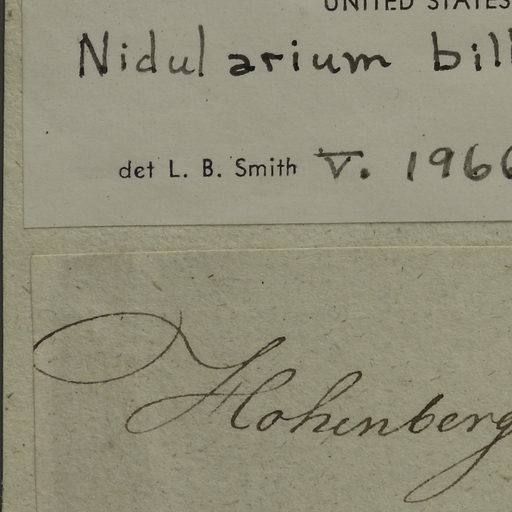 UNITED STATES
Nidularium bill
det L. B. Smith V. 1966
Hohenberg